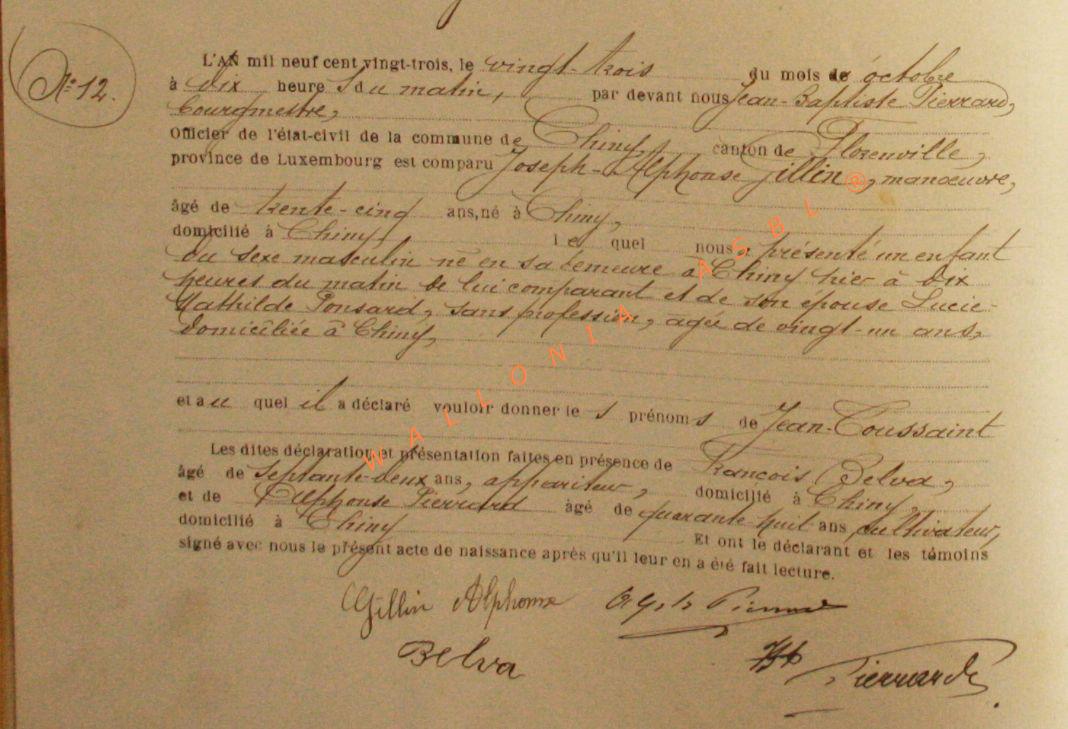 N° 12.
L'AN mil neuf cent vingt-trois, le vingt-trois du mois de octobre
à dix heures du matin, par devant nous Jean-Baptiste Pierrard,
bourgmestre,
Officier de l'état-civil de la commune de Chiny, canton de Florenville,
province de Luxembourg est comparu Joseph-Alphonse Gillin @, manœuvre,
âgé de trente-cinq ans, né à Chiny,
domicilié à Chiny, le quel nous a présenté un enfant
du sexe masculin né en sa demeure à Chiny hier à dix
heures du matin de lui comparant et de son épouse Lucie-
Mathilde Ponsard, sans profession, agée de vingt-un ans,
domiciliée à Chiny,
et au quel il a déclaré vouloir donner les prénoms de Jean-Toussaint
Les dites déclaration et présentation faites en présence de François Belva,
âgé de septante-deux ans, appariteur, domicilié à Chiny,
et de Alphonse Pierrard âgé de quarante huit ans cultivateur,
domicilié à Chiny Et ont le déclarant et les témoins
signé avec nous le présent acte de naissance après qu'il leur en a été fait lecture.
Gillin Alphonse
Belva
Pierrard
WALLONIA ASBL